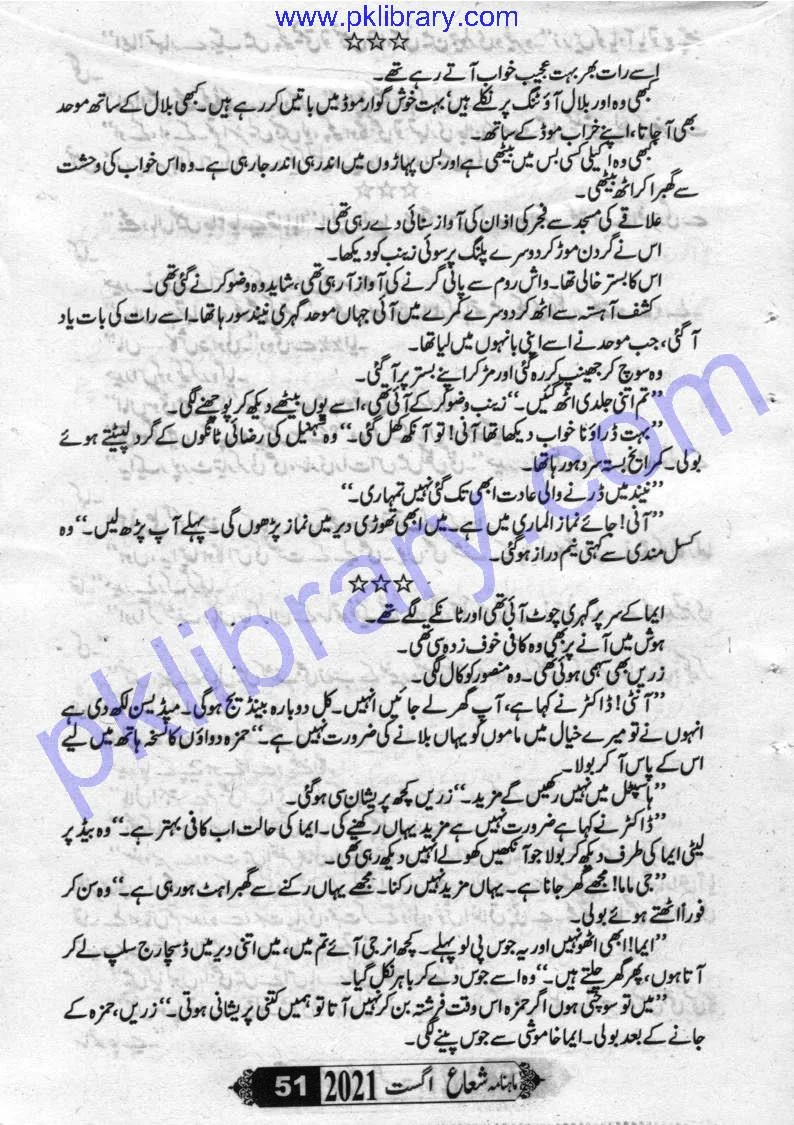 www.pklibrary.com
☆☆☆
اسے رات بھر بہت عجیب خواب آتے رہے تھے۔
کبھی وہ اور بلال آؤٹنگ پر نکلے ہیں، بہت خوش گوار موڈ میں باتیں کر رہے ہیں۔ کبھی بلال کے ساتھ موحد
بھی آ جاتا، اپنے خراب موڈ کے ساتھ۔
کبھی وہ اکیلی کسی بس میں بیٹھی ہے اور بس پہاڑوں میں اندر ہی اندر جا رہی ہے۔ وہ اس خواب کی وحشت
سے گھبرا کر اٹھ بیٹھی۔
علاقے کی مسجد سے فجر کی اذان کی آواز سنائی دے رہی تھی۔
اس نے گردن موڑ کر دوسرے پلنگ پر سوئی زینب کو دیکھا۔
اس کا بستر خالی تھا۔ واش روم سے پانی گرنے کی آواز آ رہی تھی، شاید وہ وضو کرنے گئی تھی۔
کشف آہستہ سے اٹھ کر دوسرے کمرے میں آئی جہاں موحد گہری نیند سو رہا تھا۔ اسے رات کی بات یاد
آ گئی، جب موحد نے اسے اپنی بانہوں میں لیا تھا۔
وہ سوچ کر جھینپ کر رہ گئی اور مڑ کر اپنے بستر پر آ گئی۔
”تم اتنی جلدی اٹھ گئیں۔“ زینب وضو کر کے آئی تھی، اسے یوں بیٹھے دیکھ کر پوچھنے لگی۔
”بہت ڈراؤنا خواب دیکھا تھا آنی! تو آنکھ کھل گئی۔“ وہ شنیل کی رضائی ٹانگوں کے گرد لپیٹتے ہوئے
بولی۔ کمرا یخ بستہ سرد ہو رہا تھا۔
”نیند میں ڈرنے والی عادت ابھی تک گئی نہیں تمہاری۔“
”آنی! جائے نماز الماری میں ہے۔ میں ابھی تھوڑی دیر میں نماز پڑھوں گی۔ پہلے آپ پڑھ لیں۔“ وہ
کسل مندی سے کہتی نیم دراز ہو گئی۔
☆☆☆
ایما کے سر پر گہری چوٹ آئی تھی اور ٹانکے لگے تھے۔
ہوش میں آنے پر بھی وہ کافی خوف زدہ سی تھی۔
زریں بھی سہمی ہوئی تھی۔ وہ منصور کو کال لگی۔
”آنٹی! ڈاکٹر نے کہا ہے، آپ گھر لے جائیں انہیں۔ کل دوبارہ بینڈیج ہوگی۔ میڈیسن لکھ دی ہے
انہوں نے تو میرے خیال میں ماموں کو یہاں بلانے کی ضرورت نہیں ہے۔“ حمزہ دواؤں کا نسخہ ہاتھ میں لیے
اس کے پاس آ کر بولا۔
”ہاسپٹل میں نہیں رکھیں گے مزید۔“ زریں کچھ پریشان سی ہو گئی۔
”ڈاکٹر نے کہا ہے ضرورت نہیں ہے مزید یہاں رکھنے کی۔ ایما کی حالت اب کافی بہتر ہے۔“ وہ بیڈ پر
لیٹی ایما کی طرف دیکھ کر بولا جو آنکھیں کھولے انہیں دیکھ رہی تھی۔
”جی ماما! مجھے گھر جانا ہے۔ یہاں مزید نہیں رکنا۔ مجھے یہاں رکنے سے گھبراہٹ ہو رہی ہے۔“ وہ سن کر
فوراً اٹھتے ہوئے بولی۔
”ایما! ابھی اٹھو نہیں اور یہ جوس پی لو پہلے۔ کچھ انرجی آئے تم میں، میں اتنی دیر میں ڈسچارج سلپ لے کر
آتا ہوں، پھر گھر چلتے ہیں۔“ وہ اسے جوس دے کر باہر نکل گیا۔
”میں تو سوچتی ہوں اگر حمزہ اس وقت فرشتہ بن کر نہیں آتا تو ہمیں کتنی پریشانی ہوتی۔“ زریں، حمزہ کے
جانے کے بعد بولی۔ ایما خاموشی سے جوس پینے لگی۔
ماہنامہ شعاع اگست 2021 51
pklibrary.com